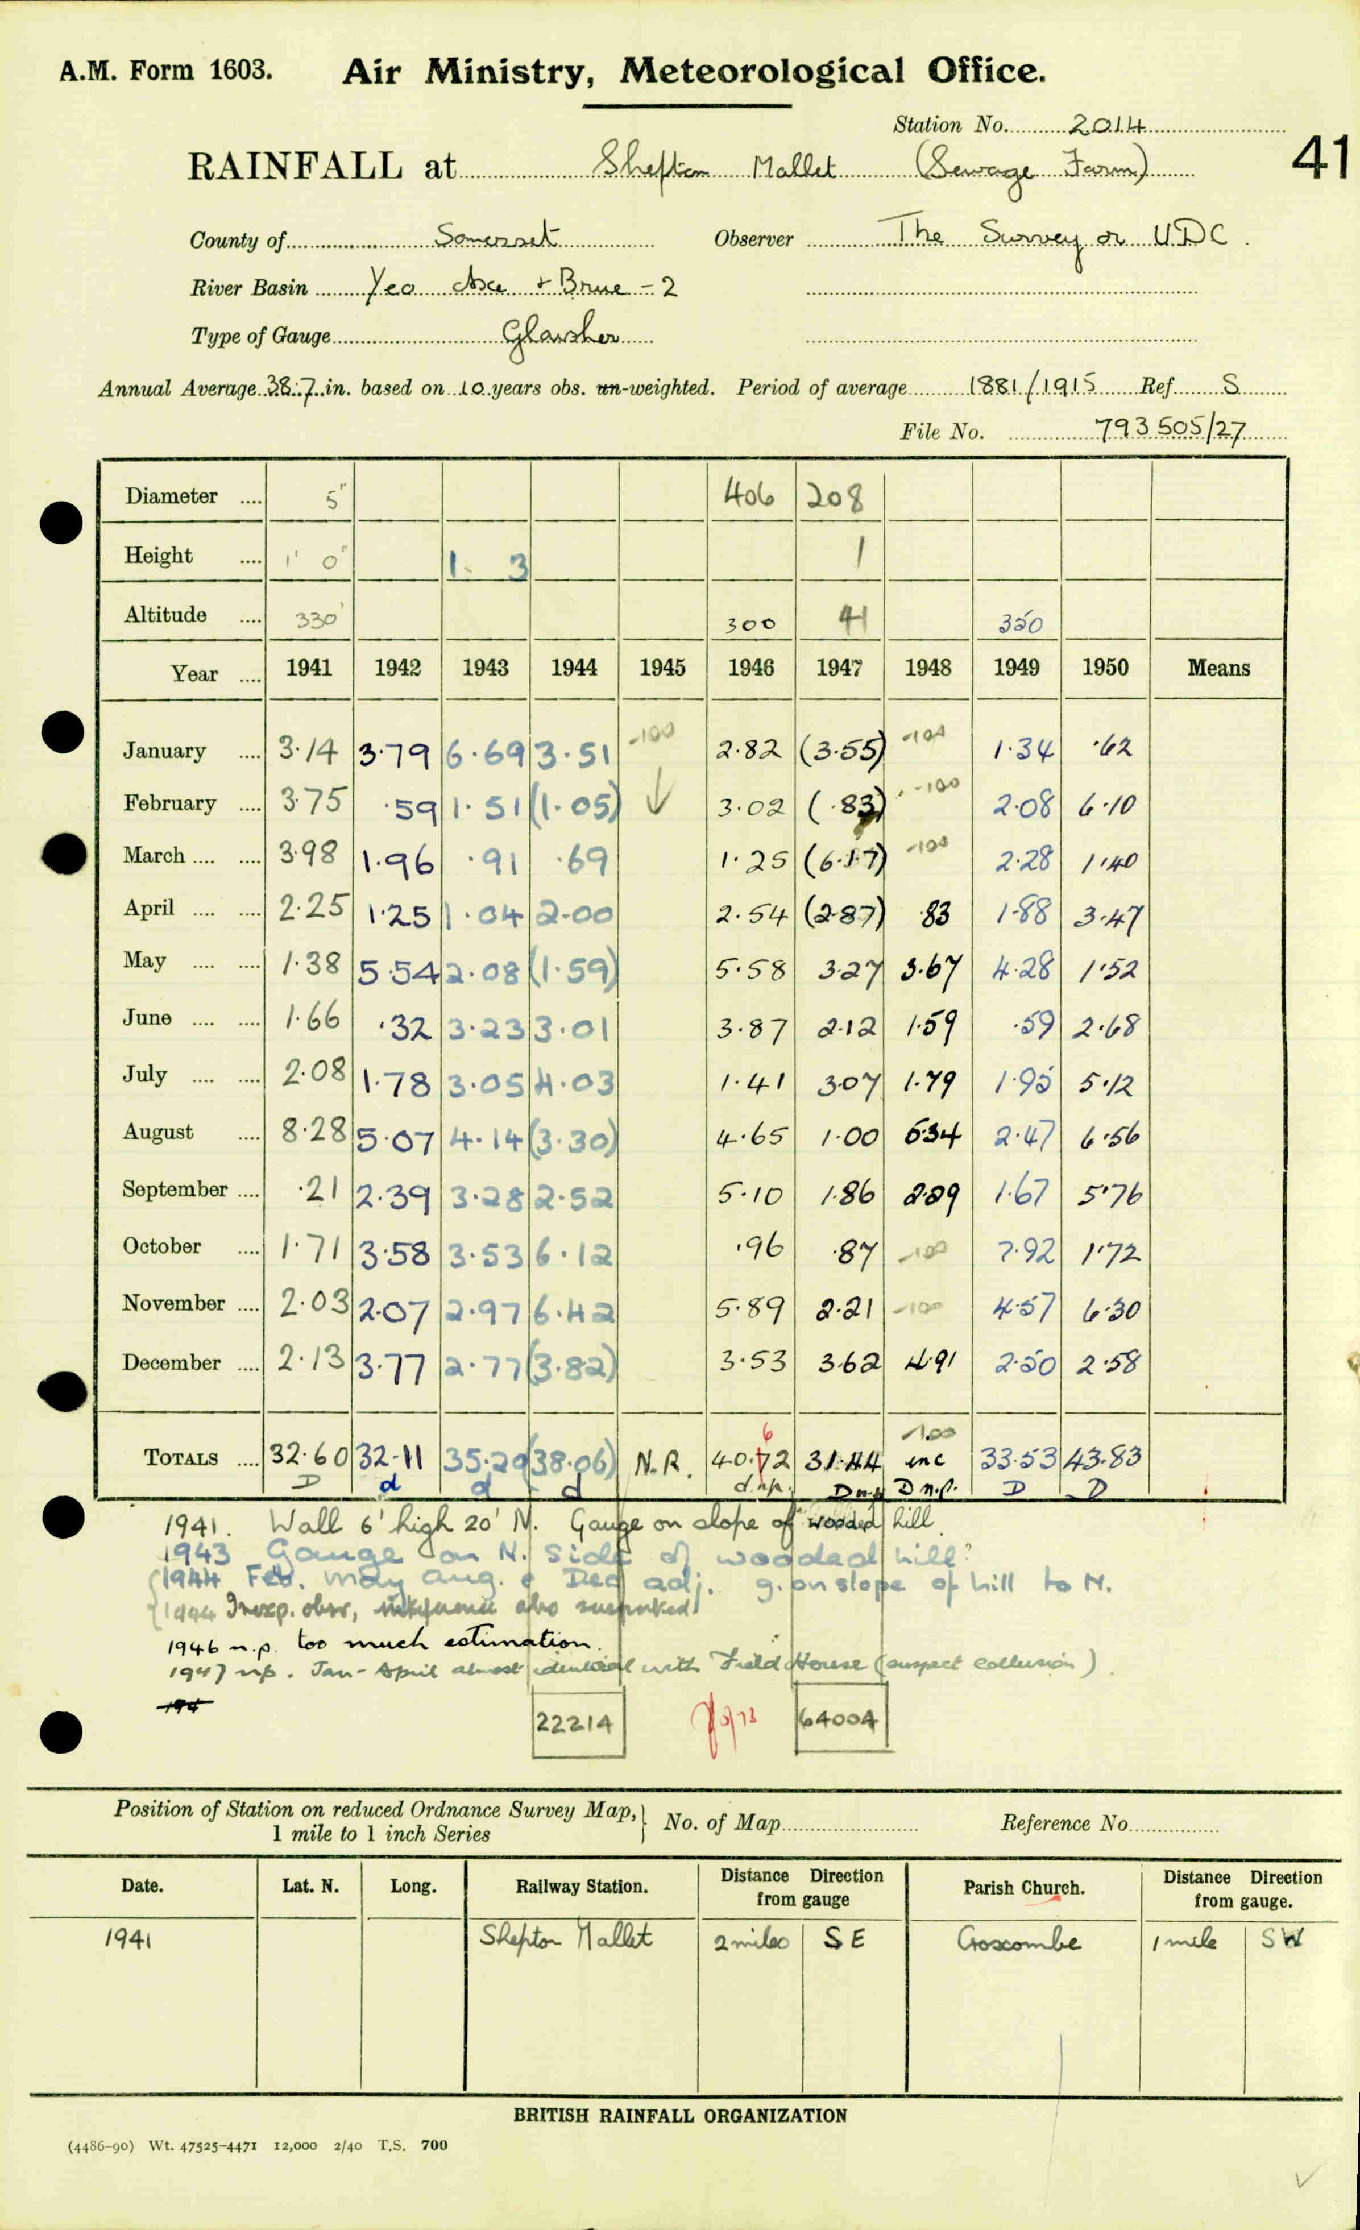 A.M. Form 1603. Air Ministry, Meteorological Office.
Station No. 2014
41
RAINFALL at Shepton Mallet (Sewage Farm)
County of Somerset Observer The Surveyor UDC.
River Basin Yeo Axe + Brue - 2
Type of Gauge Glaisher
Annual Average 38.7 in. based on 10 years obs. un-weighted. Period of average 1881/1915 Ref S
File No. 793505/27
Diameter 5" 406 208
Height 1' 0" 1. 3 1
Altitude 330' 300 41 350
Year 1941 1942 1943 1944 1945 1946 1947 1948 1949 1950 Means
January 3.14 3.79 6.69 3.51 -100 2.82 (3.55) -100 1.34 .62
February 3.75 .59 1.51 (1.05) ↓ 3.02 (.83) -100 2.08 6.10
March 3.98 1.96 .91 .69 1.25 (6.17) -100 2.28 1.40
April 2.25 1.25 1.04 2.00 2.54 (2.87) .83 1.88 3.47
May 1.38 5.54 2.08 (1.59) 5.58 3.27 3.67 4.28 1.52
June 1.66 .32 3.23 3.01 3.87 2.12 1.59 .59 2.68
July 2.08 1.78 3.05 4.03 1.41 3.07 1.79 1.95 5.12
August 8.28 5.07 4.14 (3.30) 4.65 1.00 5.34 2.47 6.56
September .21 2.39 3.28 2.52 5.10 1.86 2.29 1.67 5.76
October 1.71 3.58 3.53 6.12 .96 .87 -100 7.92 1.72
November 2.03 2.07 2.97 6.42 5.89 2.21 -100 4.57 6.30
December 2.13 3.77 2.77 (3.82) 3.53 3.62 4.91 2.50 2.58
6 -100
TOTALS 32.60 32.11 35.20 (38.06) N.R. 40.72 31.44 inc 33.53 43.83
D d d d d.n.p. D n.p. D n.p. D D
1941. Wall 6' high 20' N. Gauge on slope of wooded hill.
1943 Gauge on N. side of wooded hill?
1944 Feb. May Aug. & Dec adj. g. on slope of hill to N.
1944 Inexp. obsr, inteference also suspected
1946 n.p. too much estimation.
1947 n.p. Jan - April almost identical with Field House (suspect collusion).
194
22214 64004
Position of Station on reduced Ordnance Survey Map, 1 mile to 1 inch Series } No. of Map Reference No.
Date. Lat. N. Long. Railway Station. Distance Direction from gauge Parish Church. Distance Direction from gauge.
1941 Shepton Mallet 2 miles SE Croscombe 1 mile SW
BRITISH RAINFALL ORGANIZATION
(4486-90) Wt. 47525-4471 12,000 2/40 T.S. 700